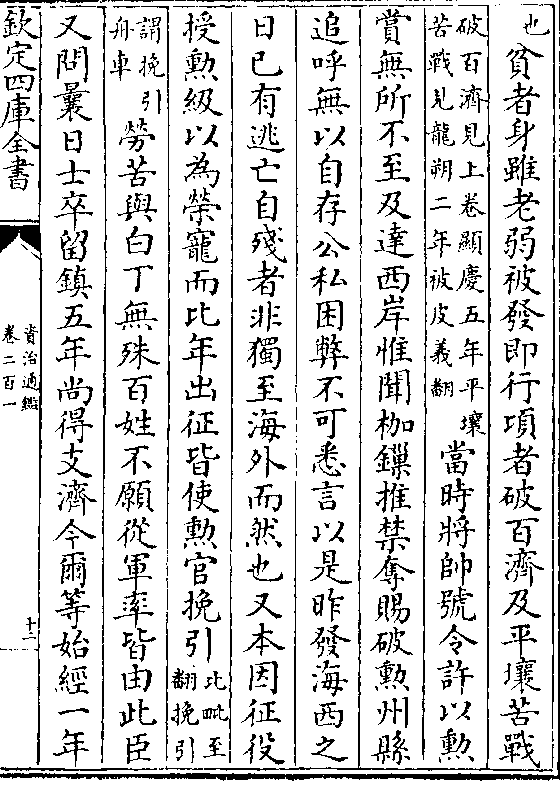 也貧者身雖老弱被發即行頃者破百濟及平壤苦戰
破百濟見上卷顯慶五年平壤
苦戰見龍朔二年被皮義翻
當時將帥號令許以勲
賞無所不至及達西岸惟聞枷鏁推禁奪賜破勲州縣
追呼無以自存公私困弊不可悉言以是昨發海西之
日已有逃亡自殘者非獨至海外而然也又本因征役
授勲級以為榮寵而比年出征皆使勲官挽引
比毗至
翻挽引
謂挽引
舟車
勞苦與白丁無殊百姓不願從軍率皆由此臣
又問曩日士卒留鎮五年尚得支濟今爾等始經一年
欽定四庫全書
資治通鑑
卷二百一
十二